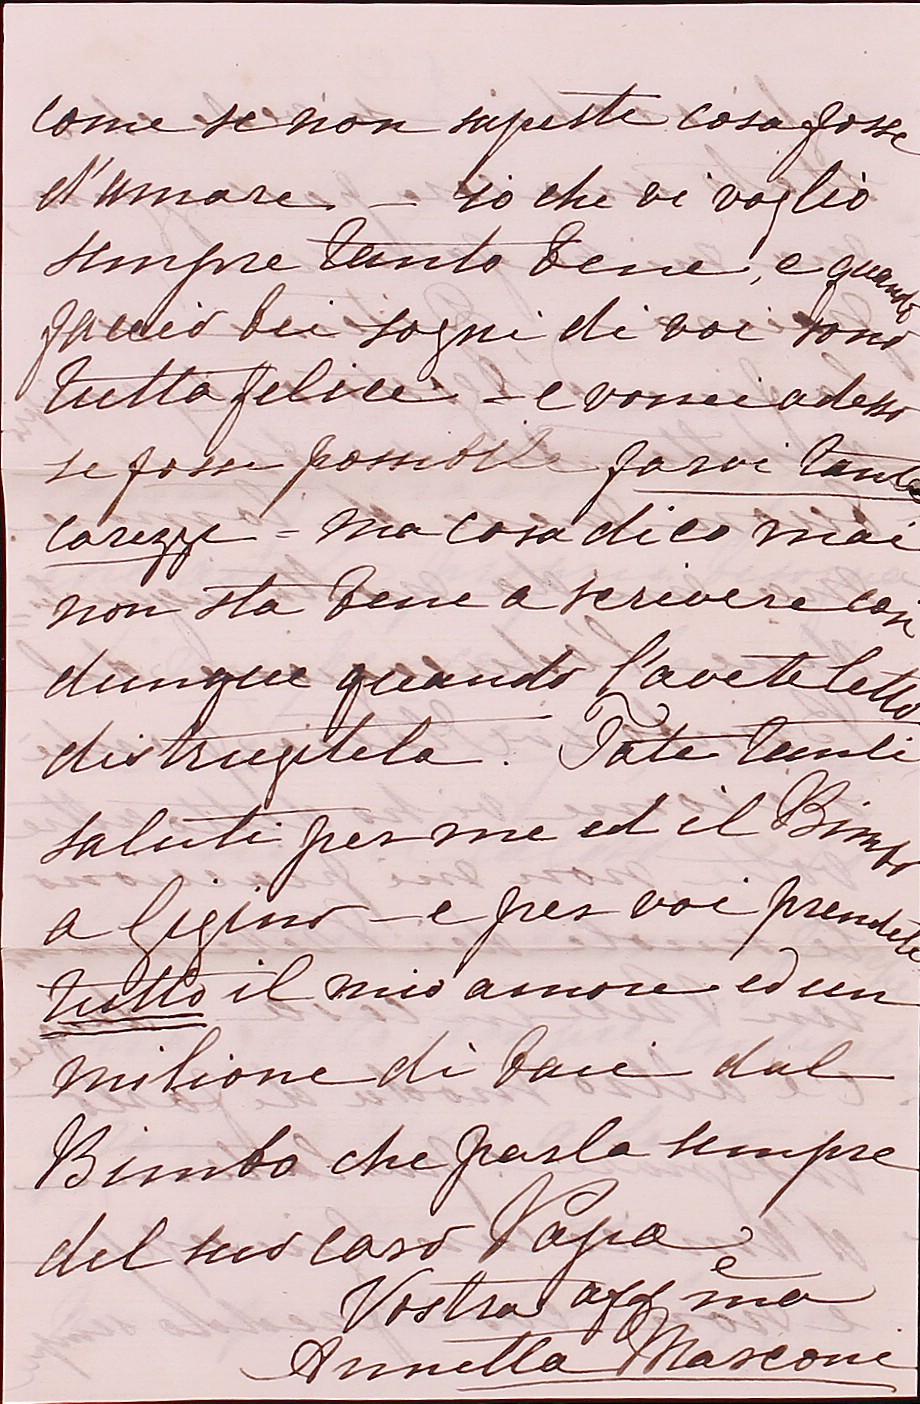 come se non sapeste cosa fosse
d'amare – io che vi voglio
sempre tanto bene, e quando
faccio bei sogni di voi sono
tutta felice – e vorrei adesso
se fosse possibile farvi tante
carezze – ma cosa dico mai
non sta bene a scrivere così
dunque quando l'avete letto
distrugitela. Fate tanti
saluti per me ed il Bimbo
a Gigino – e per voi prendete
tutto il mio amore ed un
milione di baci dal
Bimbo che parla sempre
del suo caro Papa
Vostra aff ma
Annetta Marconi